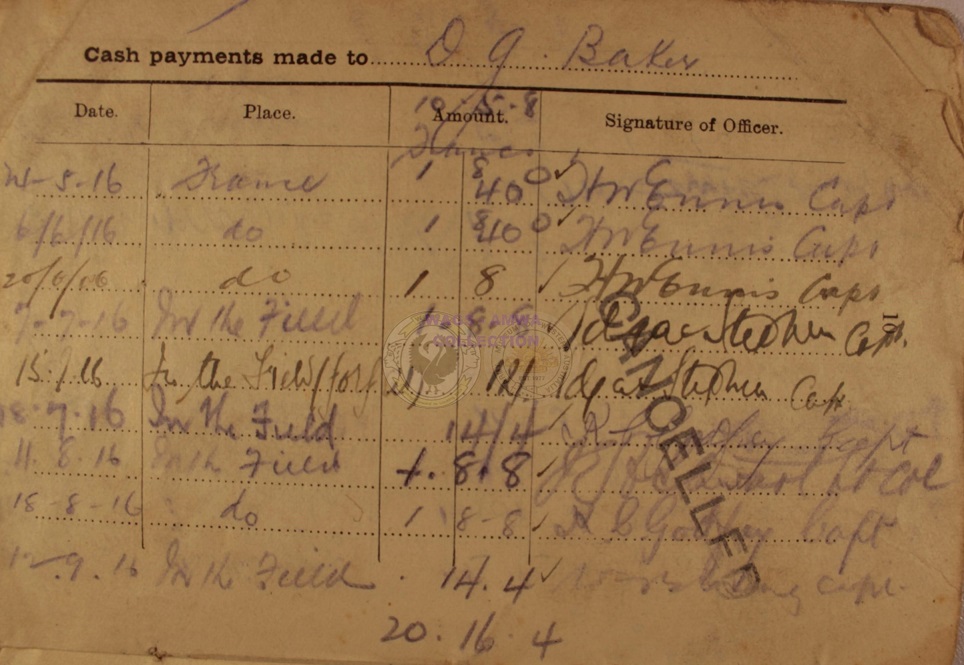 Cash payments made to D G. Baker
10 . 5 . 8
Date. Place. Amount. Signature of Officer.
Francs
24-5-16 France 1 8 40 0 HW Ennis Capt
6/6/16 do 1 8 40 0 HW Ennis Capt
20/6/16 do 1 8 HW Ennis Capt
7-7-16 In the Field 1-8-8 Stephen Capt.
15.7.16 In the Field 12/ Stephen Capt
18.7.16 In the Field 14/4 Capt
11.8.16 In the Field 1.8.8 Lt Col
18-8-16 do 1 8-8 Capt
12.9.16 In the Field 14.4 Capt.
20.16.4
CANCELLED
WAGGA AMMA
COLLECTION